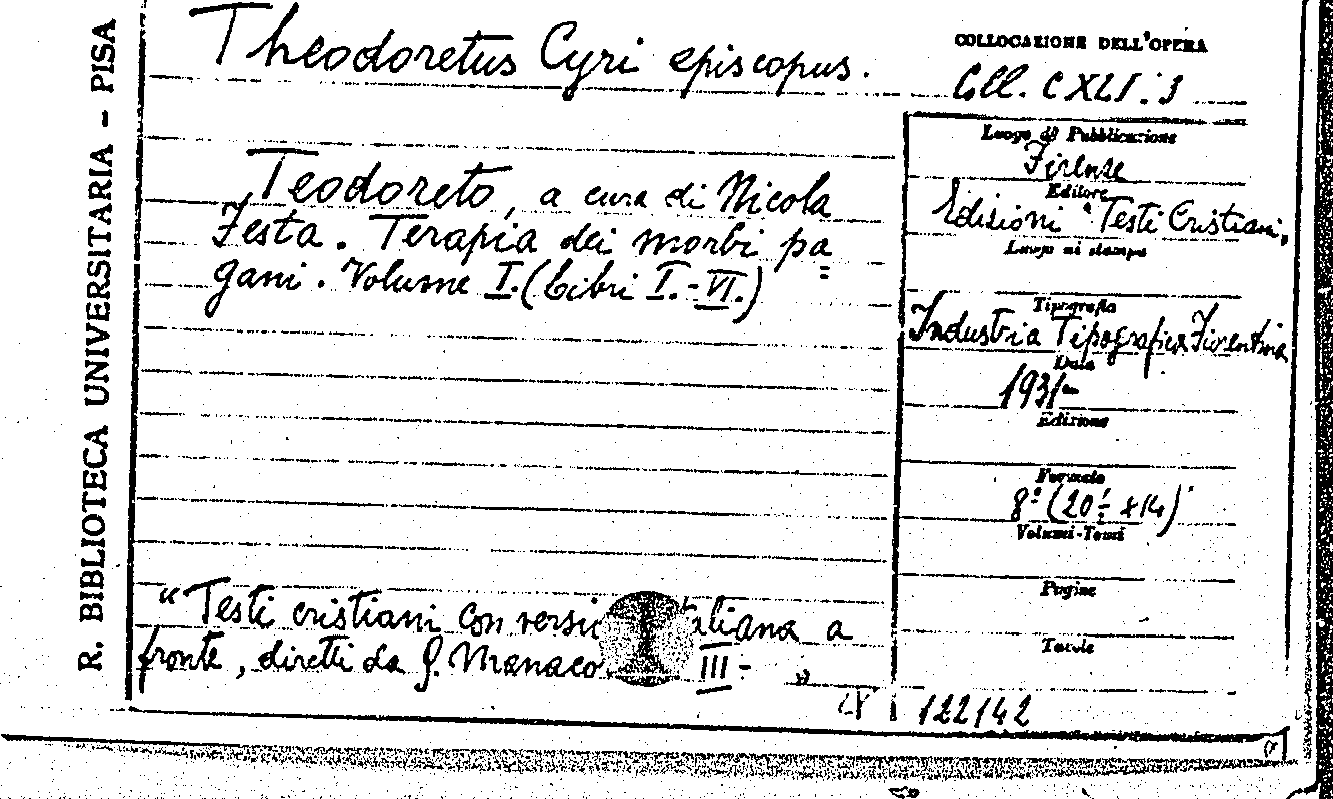 R. BIBLIOTECA UNIVERSITARIA - PISA
Theodoretus Cyri episcopus.
COLLOCAZIONE DELL'OPERA
Coll. CXLI.3
Teodoreto, a cura di Nicola
Festa. Terapia dei morbi pa=
gani. Volume I. (Libri I.-VI.)
"Testi cristiani con versio taliana a
fronte, diretti da G. Manaco III- "
Luogo di Pubblicazione
Firenze
Editore
Edizioni "Testi Cristiani"
Luogo di stampa
Tipografia
Industria Tipografica Fiorentina
Data
1931-
Edizione
Formato
8º (20½ x 14)
Volumi-Tomi
Pagine
Tavole
122142